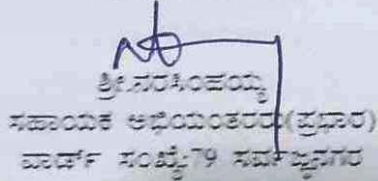 ಶ್ರೀ.ನರಸಿಂಹಯ್ಯ
ಸಹಾಯಕ ಅಭಿಯಂತರರು(ಪ್ರಭಾರ)
ವಾರ್ಡ್ ಸಂಖ್ಯೆ:79 ಸರ್ವಜ್ಞನಗರ